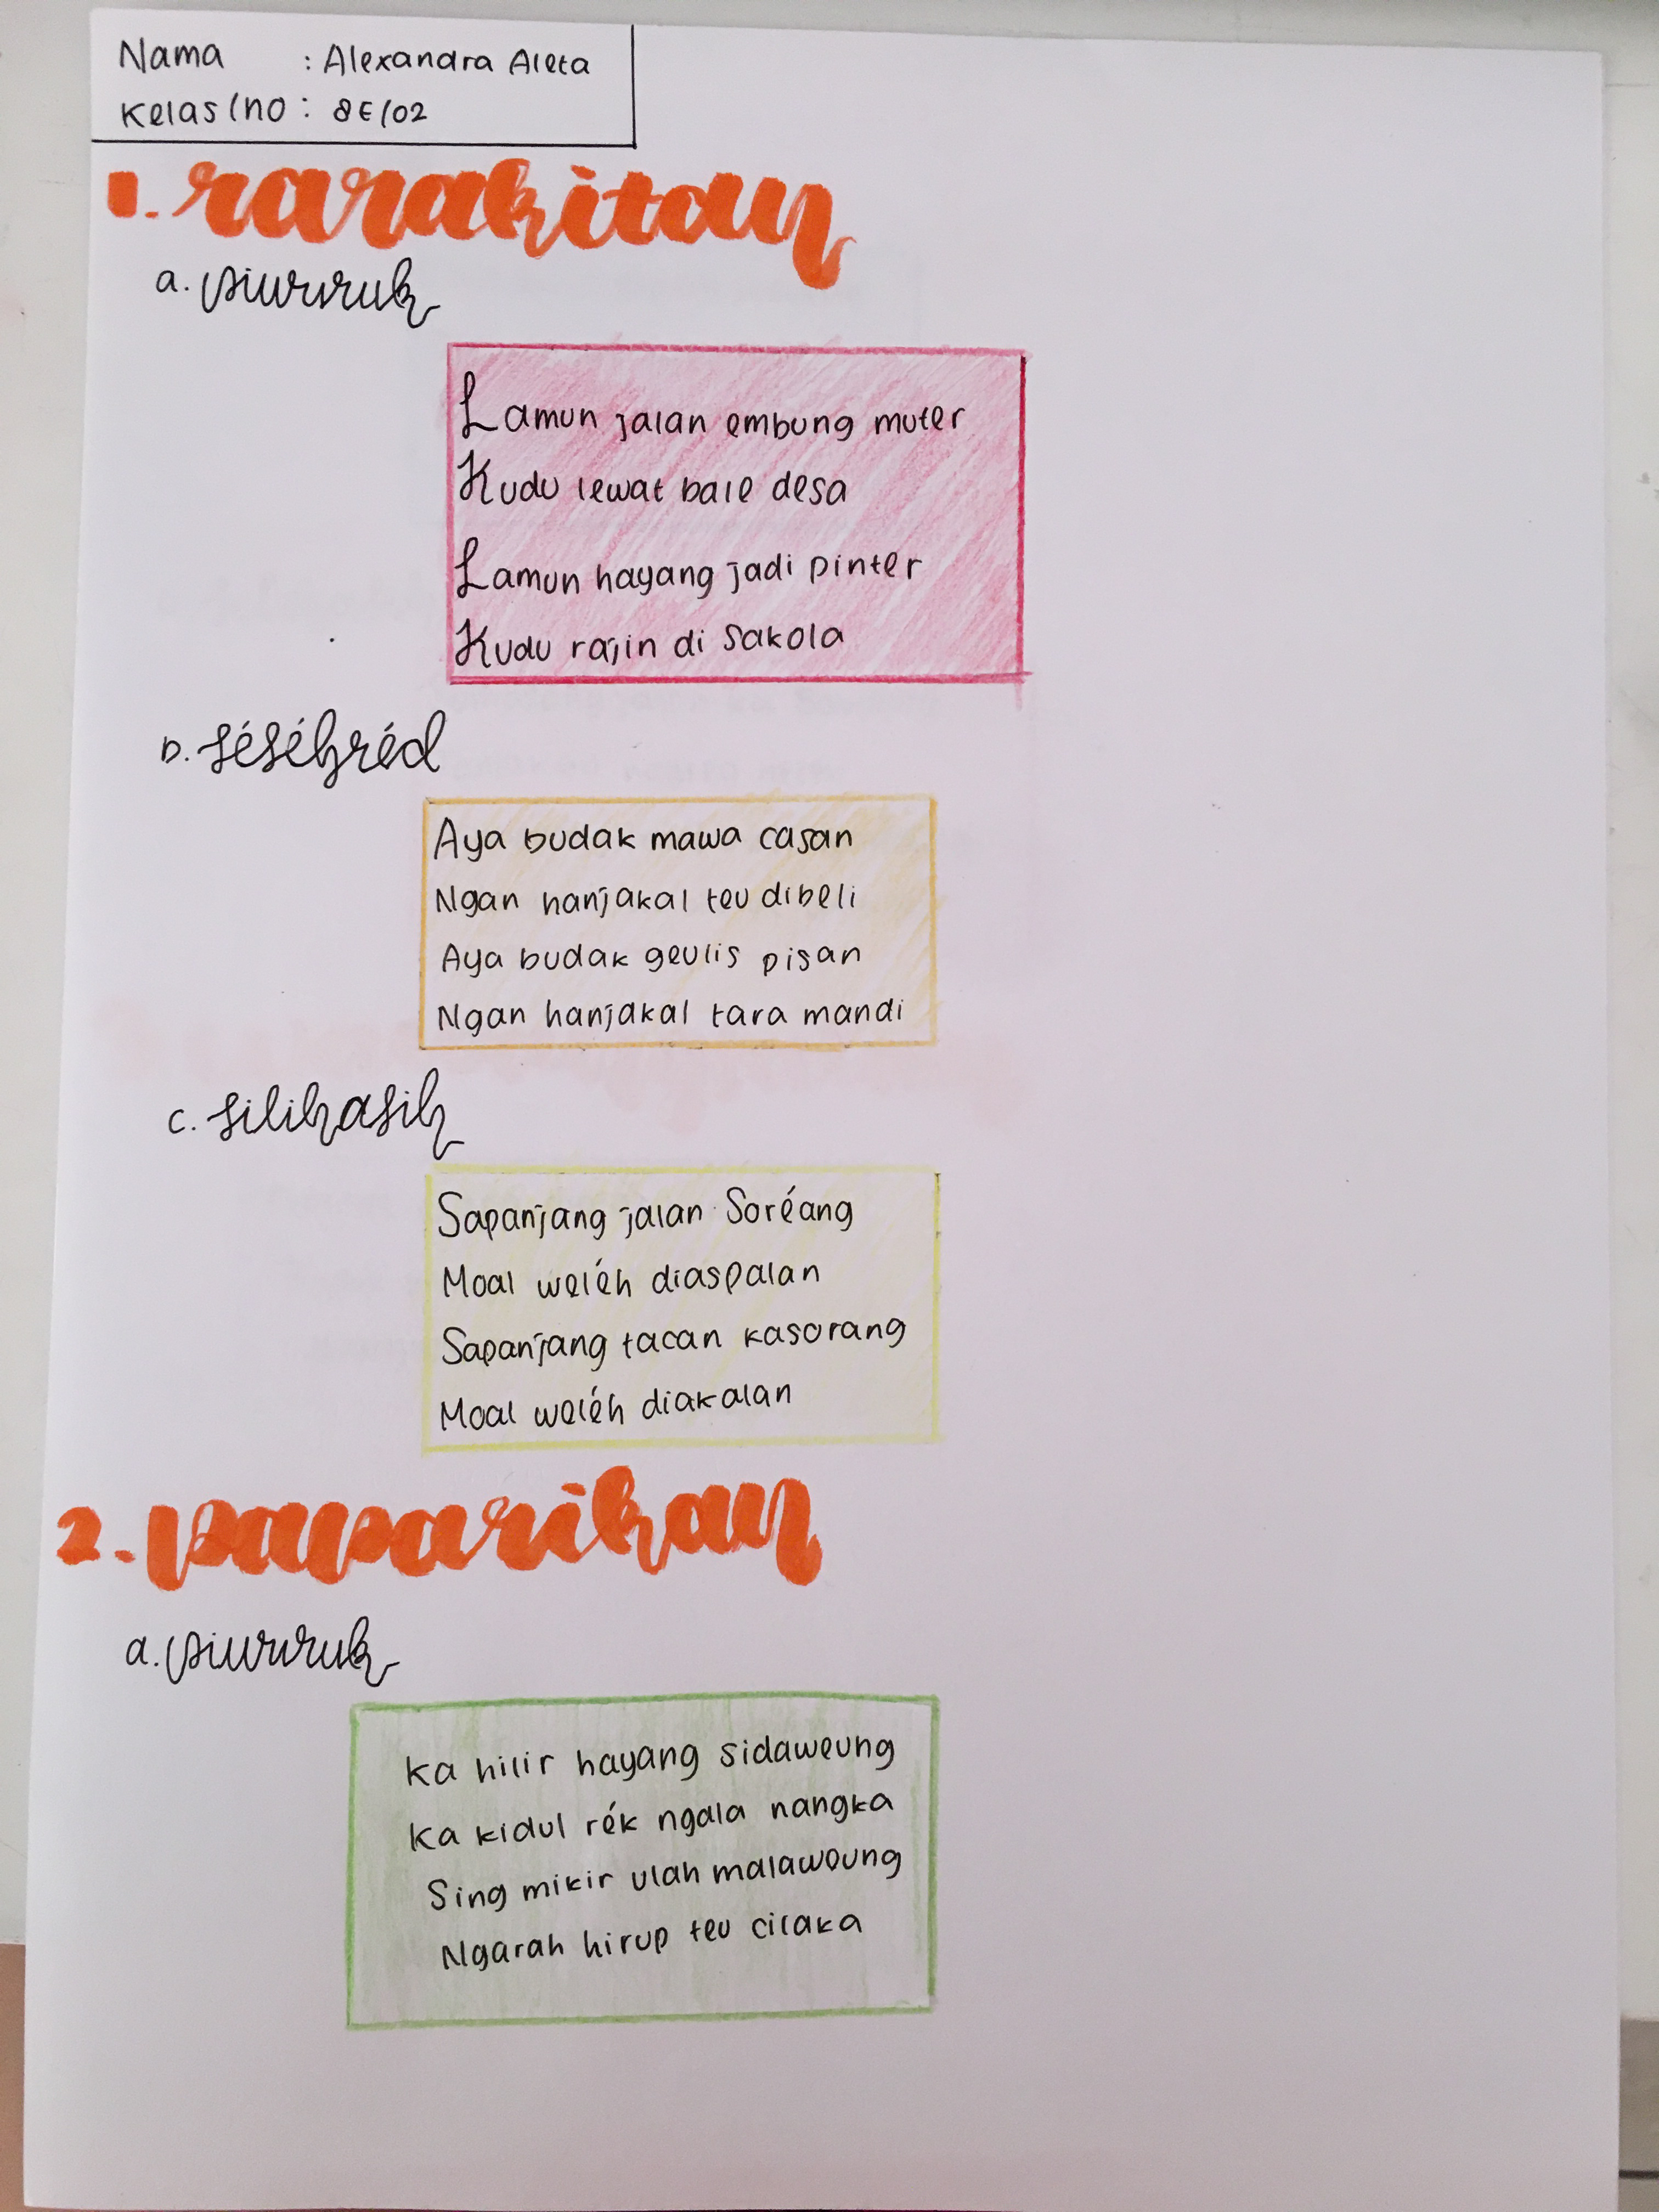 Nama : Alexandra Aleta
Kelas/no : 8E/02
1. rarakitan
a. piwuruk
Lamun jalan embung muter
Kudu lewat bale desa
Lamun hayang jadi pinter
Kudu rajin di sakola
b. séséhréd
Aya budak mawa casan
Ngan hanjakal teu dibeli
Aya budak geulis pisan
Ngan hanjakal tara mandi
c. silihasih
Sapanjang jalan Soréang
Moal weléh diaspalan
Sapanjang tacan kasorang
Moal weléh diakalan
2. paparikan
a. piwuruk
Ka hilir hayang sidaweung
Ka kidul rék ngala nangka
Sing mikir ulah malaweung
Ngarah hirup teu cilaka